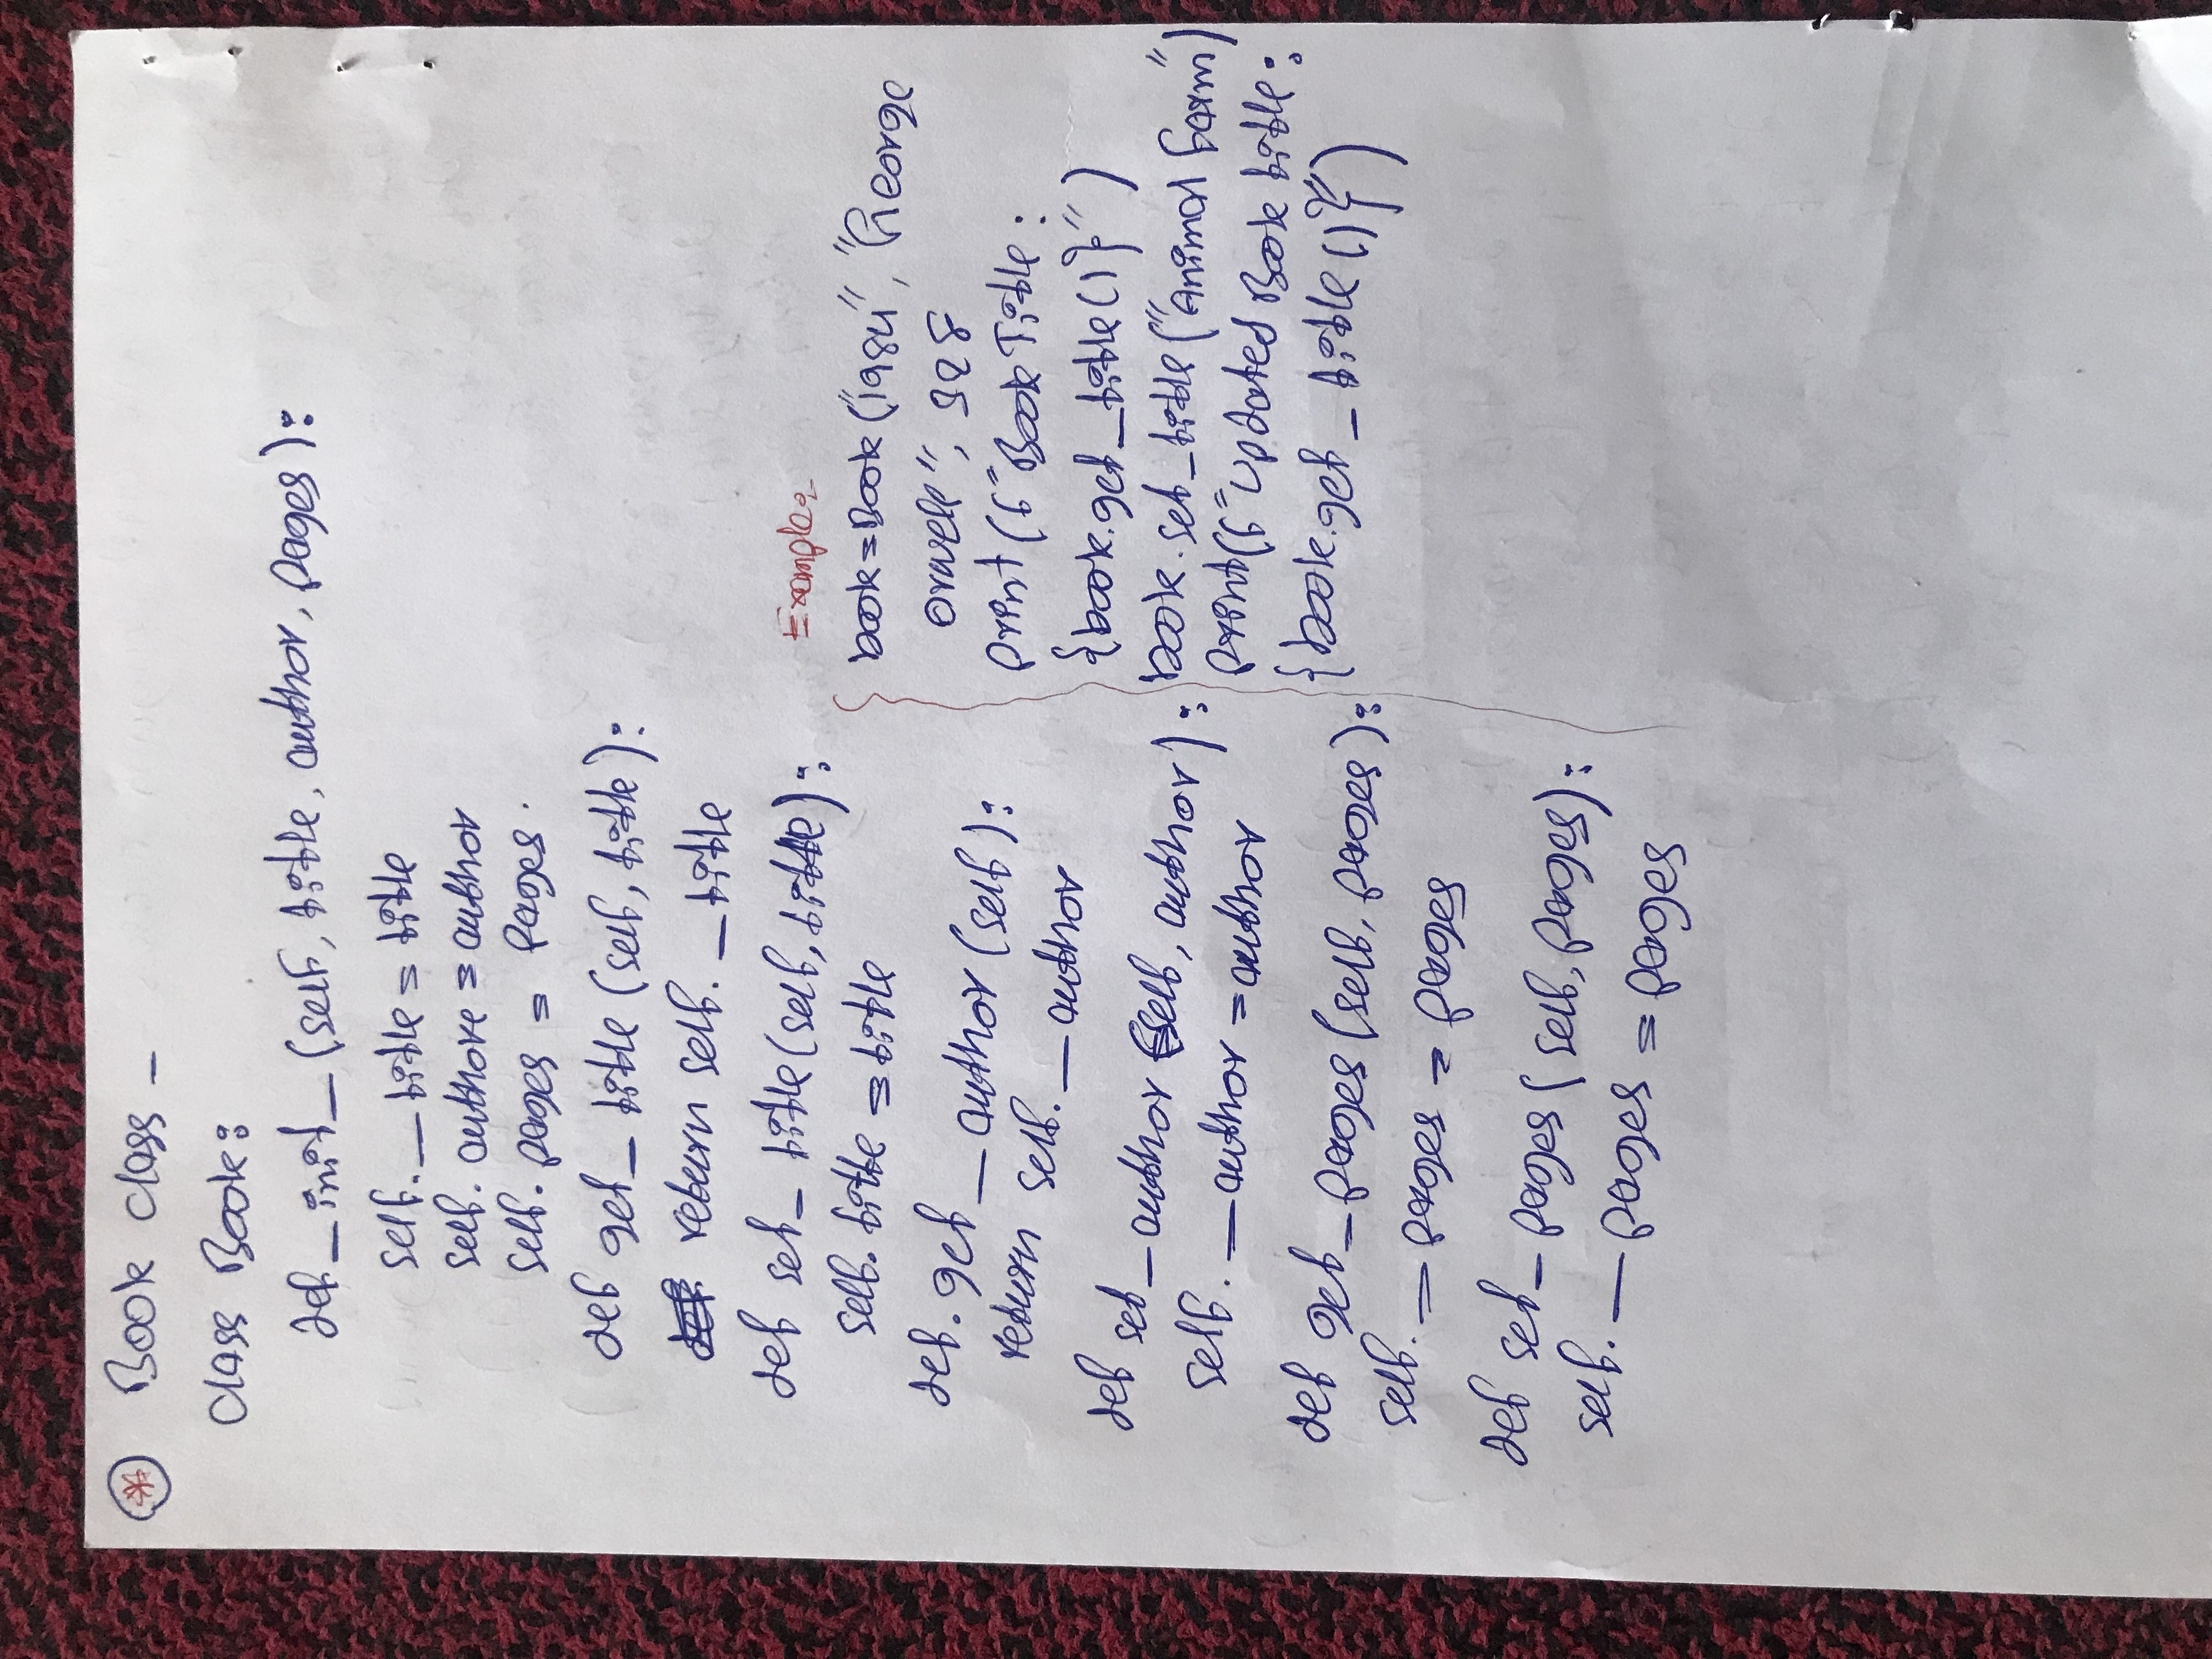 * Book class -
class Book:
def _init_ (self, title, author, pages):
self. _title = title
self. authore = author
self. pages = pages.
def get_ title (self, title):
return self. _title
def set_ title (self, title):
self. title = title
def. get _ author (self):
return self. _ author
def set _ author (self, author):
self. _ author = author
def get _ pages (self, pages):
self. _ pages = pages
def set _ pages (self, pages):
self. _ pages = pages
Example:-
book = Book ("1984", "George
orwell", 328
print (f"Book Title :
{book.get_title()}")
book.set_title("Animal farm")
print(f"updated Book title:
{book.get _ title ()}")